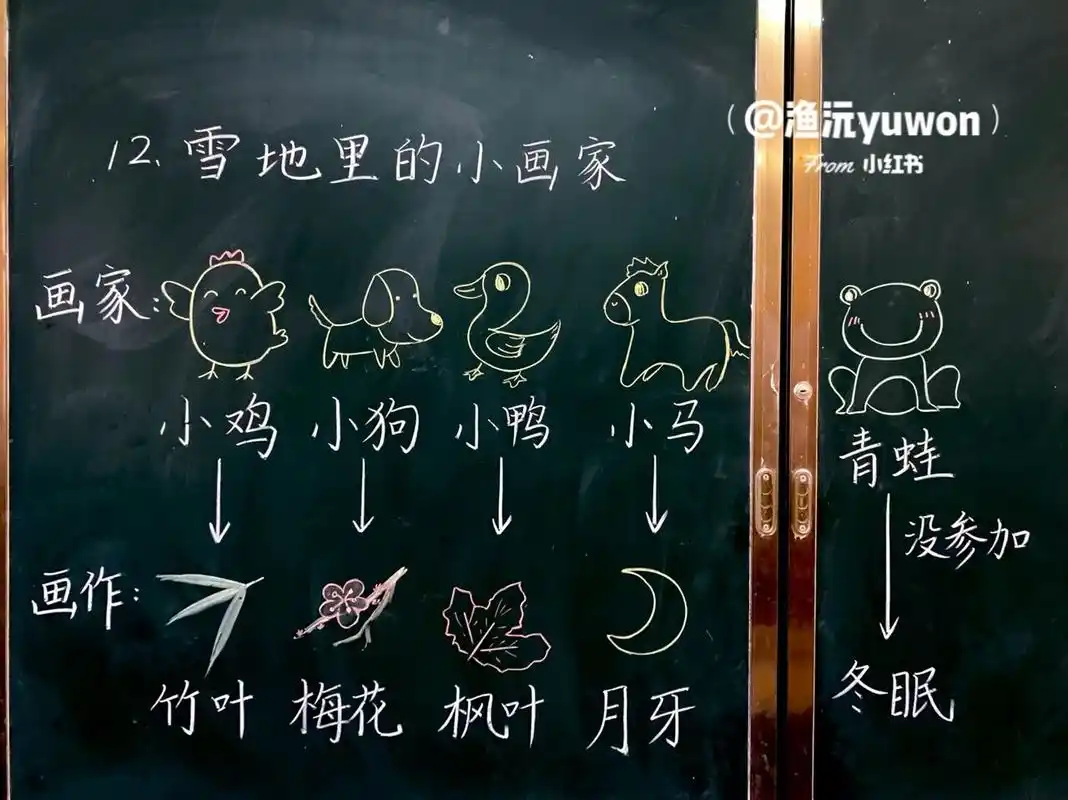 (@渔沅yuwon)
From 小红书
12.雪地里的小画家
画家:
小鸡 小狗 小鸭 小马
青蛙
没参加
画作:
竹叶 梅花 枫叶 月牙
冬眠